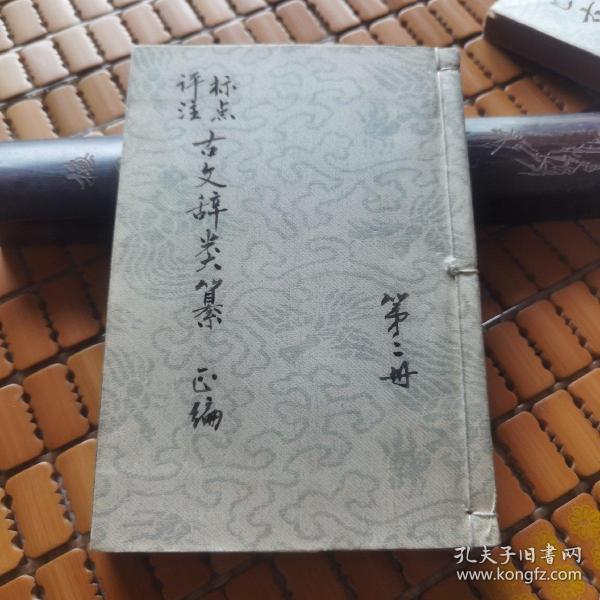 标点
评注
古文辞类纂 正编
第二册
孔夫子旧书网
www.kongfz.com